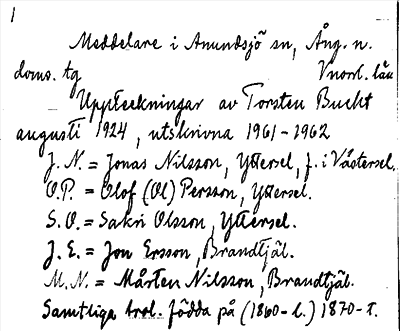 1
Meddelare i Anundsjö sn, Ång. n.
doms. tg Vnorl. län
Uppteckningar av Torsten Bucht
augusti 1924, utskrivna 1961-1962
J. N. = Jonas Nilsson, Yttersel, f. i Västersel.
O.P. = Olof (Ol) Persson, Yttersel.
S. O. = Sakri Olsson, Yttersel.
J. E. = Jon Ersson, Brandtjäl.
M. N. = Mårten Nilsson, Brandtjäl.
Samtliga trol. födda på (1860-t.) 1870-t.